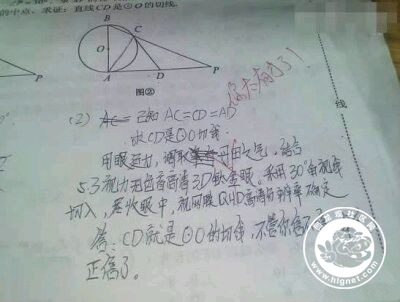 的中点。求证：直线CD是⊙O的切线.
B
C
O
P
A
D
P
图②
你太有才了！
线
(2) 已知 AC=CD=AD
求CD是⊙O切线
用眼运力，调取丹田之气，结合
5.3视力和超高清3D钛金眼。采用30°角视点
切入，聚狄眼中，视网膜QHD高清的斜率确定
答：CD就是⊙O的切线，不管你信不
正信了。
www.hlgnet.com